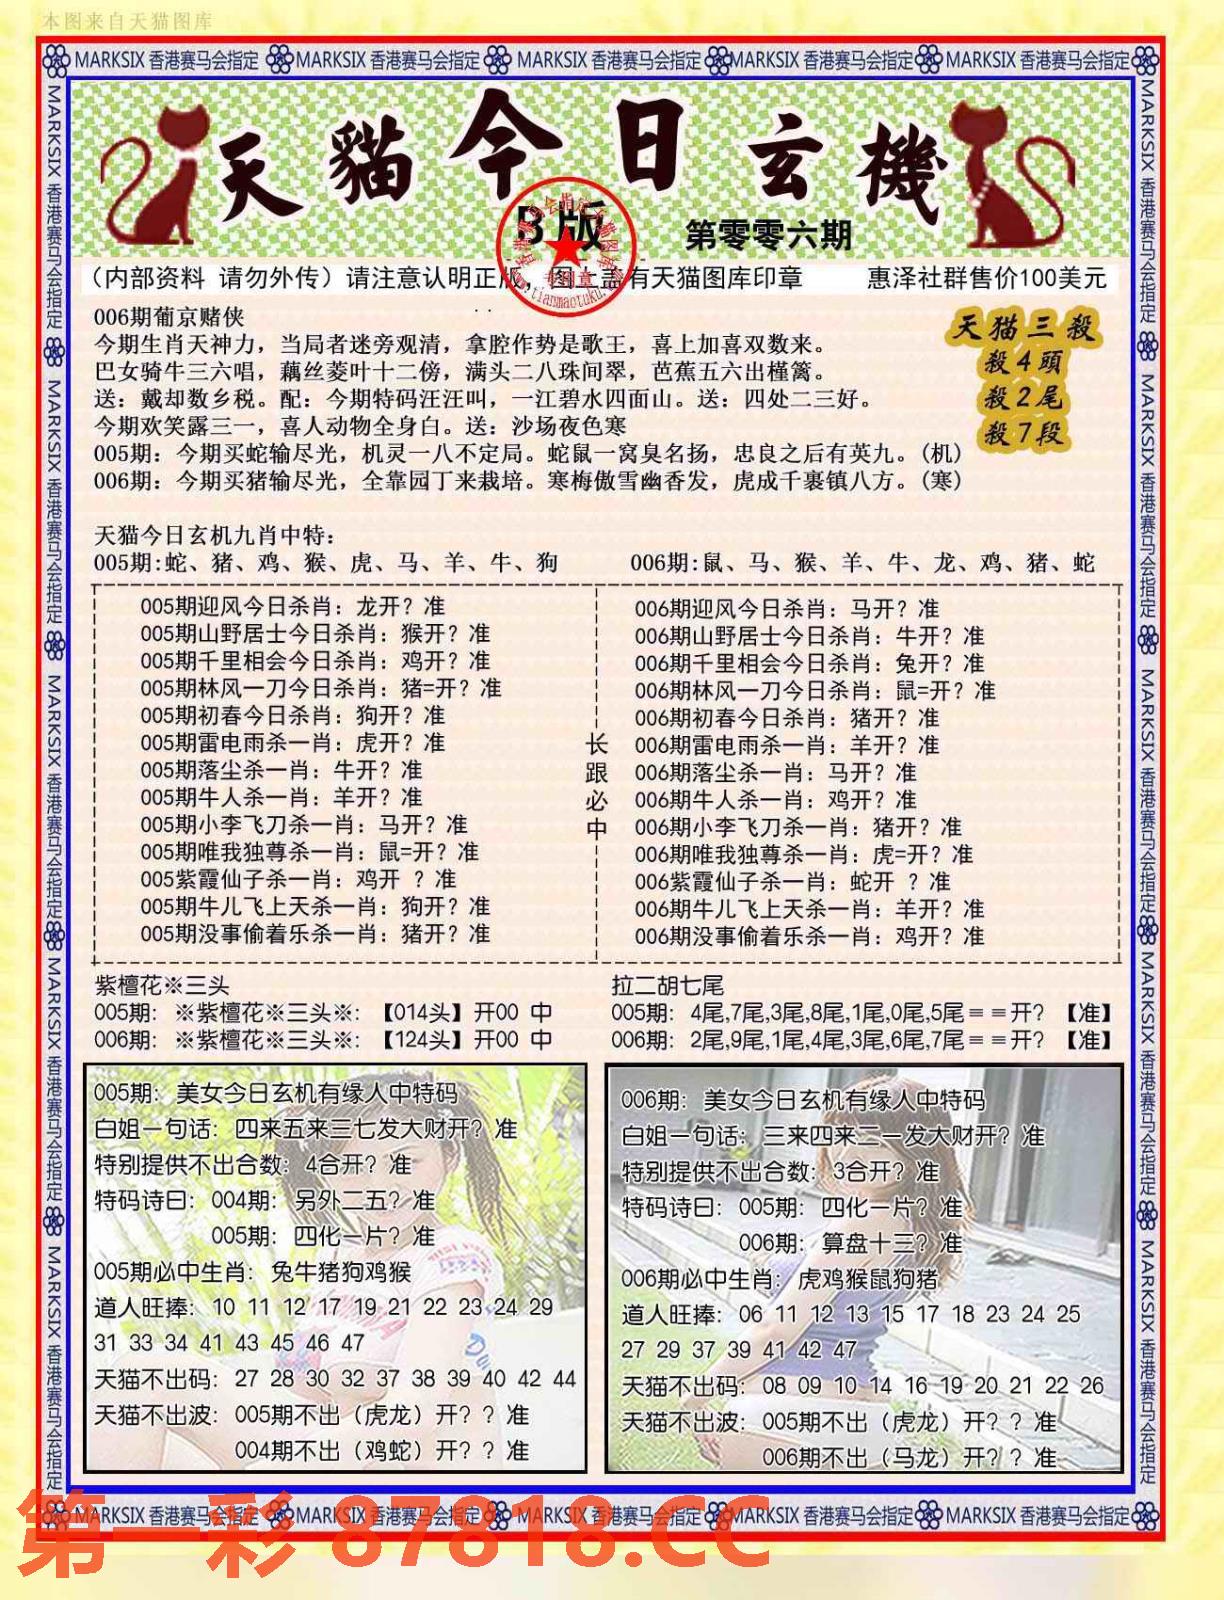 本图来自天猫图库
MARKSIX 香港赛马会指定 MARKSIX 香港赛马会指定 MARKSIX 香港赛马会指定 MARKSIX 香港赛马会指定 MARKSIX 香港赛马会指定
天貓今日玄機
B版
第零零六期
(内部资料 请勿外传)请注意认明正版,图上盖有天猫图库印章 惠泽社群售价100美元
006期葡京赌侠
今期生肖天神力，当局者迷旁观清，拿腔作势是歌王，喜上加喜双数来。
巴女骑牛三六唱，藕丝菱叶十二傍，满头二八珠间翠，芭蕉五六出槿篱。
送：戴却数乡税。配：今期特码汪汪叫，一江碧水四面山。送：四处二三好。
今期欢笑露三一，喜人动物全身白。送：沙场夜色寒
005期：今期买蛇输尽光，机灵一八不定局。蛇鼠一窝臭名扬，忠良之后有英九。(机)
006期：今期买猪输尽光，全靠园丁来栽培。寒梅傲雪幽香发，虎成千裹镇八方。(寒)
天猫三殺
殺4頭
殺2尾
殺7段
天猫今日玄机九肖中特：
005期:蛇、猪、鸡、猴、虎、马、羊、牛、狗
006期:鼠、马、猴、羊、牛、龙、鸡、猪、蛇
005期迎风今日杀肖：龙开？准
005期山野居士今日杀肖：猴开？准
005期千里相会今日杀肖：鸡开？准
005期林风一刀今日杀肖：猪=开？准
005期初春今日杀肖：狗开？准
005期雷电雨杀一肖：虎开？准
005期落尘杀一肖：牛开？准
005期牛人杀一肖：羊开？准
005期小李飞刀杀一肖：马开？准
005期唯我独尊杀一肖：鼠=开？准
005紫霞仙子杀一肖：鸡开 ？准
005期牛儿飞上天杀一肖：狗开？准
005期没事偷着乐杀一肖：猪开？准
长跟必中
006期迎风今日杀肖：马开？准
006期山野居士今日杀肖：牛开？准
006期千里相会今日杀肖：兔开？准
006期林风一刀今日杀肖：鼠=开？准
006期初春今日杀肖：猪开？准
006期雷电雨杀一肖：羊开？准
006期落尘杀一肖：马开？准
006期牛人杀一肖：鸡开？准
006期小李飞刀杀一肖：猪开？准
006期唯我独尊杀一肖：虎=开？准
006紫霞仙子杀一肖：蛇开 ？准
006期牛儿飞上天杀一肖：羊开？准
006期没事偷着乐杀一肖：鸡开？准
紫檀花※三头
005期：※紫檀花※三头※：【014头】开00 中
006期：※紫檀花※三头※：【124头】开00 中
拉二胡七尾
005期：4尾,7尾,3尾,8尾,1尾,0尾,5尾＝＝开？【准】
006期：2尾,9尾,1尾,4尾,3尾,6尾,7尾＝＝开？【准】
005期：美女今日玄机有缘人中特码
白姐一句话：四来五来三七发大财开？准
特别提供不出合数：4合开？准
特码诗曰：004期：另外二五？准
005期：四化一片？准
005期必中生肖：兔牛猪狗鸡猴
道人旺捧：10 11 12 17 19 21 22 23 24 29
31 33 34 41 43 45 46 47
天猫不出码：27 28 30 32 37 38 39 40 42 44
天猫不出波：005期不出（虎龙）开？？准
004期不出（鸡蛇）开？？准
006期：美女今日玄机有缘人中特码
白姐一句话：三来四来二一发大财开？准
特别提供不出合数：3合开？准
特码诗曰：005期：四化一片？准
006期：算盘十三？准
006期必中生肖：虎鸡猴鼠狗猪
道人旺捧：06 11 12 13 15 17 18 23 24 25
27 29 37 39 41 42 47
天猫不出码：08 09 10 14 16 19 20 21 22 26
天猫不出波：005期不出（虎龙）开？？准
006期不出（马龙）开？？准
MARKSIX 香港赛马会指定 MARKSIX 香港赛马会指定 MARKSIX 香港赛马会指定 MARKSIX 香港赛马会指定 MARKSIX 香港赛马会指定
第一彩 87818.CC
MARKSIX 香港赛马会指定 MARKSIX 香港赛马会指定 MARKSIX 香港赛马会指定 MARKSIX 香港赛马会指定 MARKSIX 香港赛马会指定
MARKSIX 香港赛马会指定 MARKSIX 香港赛马会指定 MARKSIX 香港赛马会指定 MARKSIX 香港赛马会指定 MARKSIX 香港赛马会指定